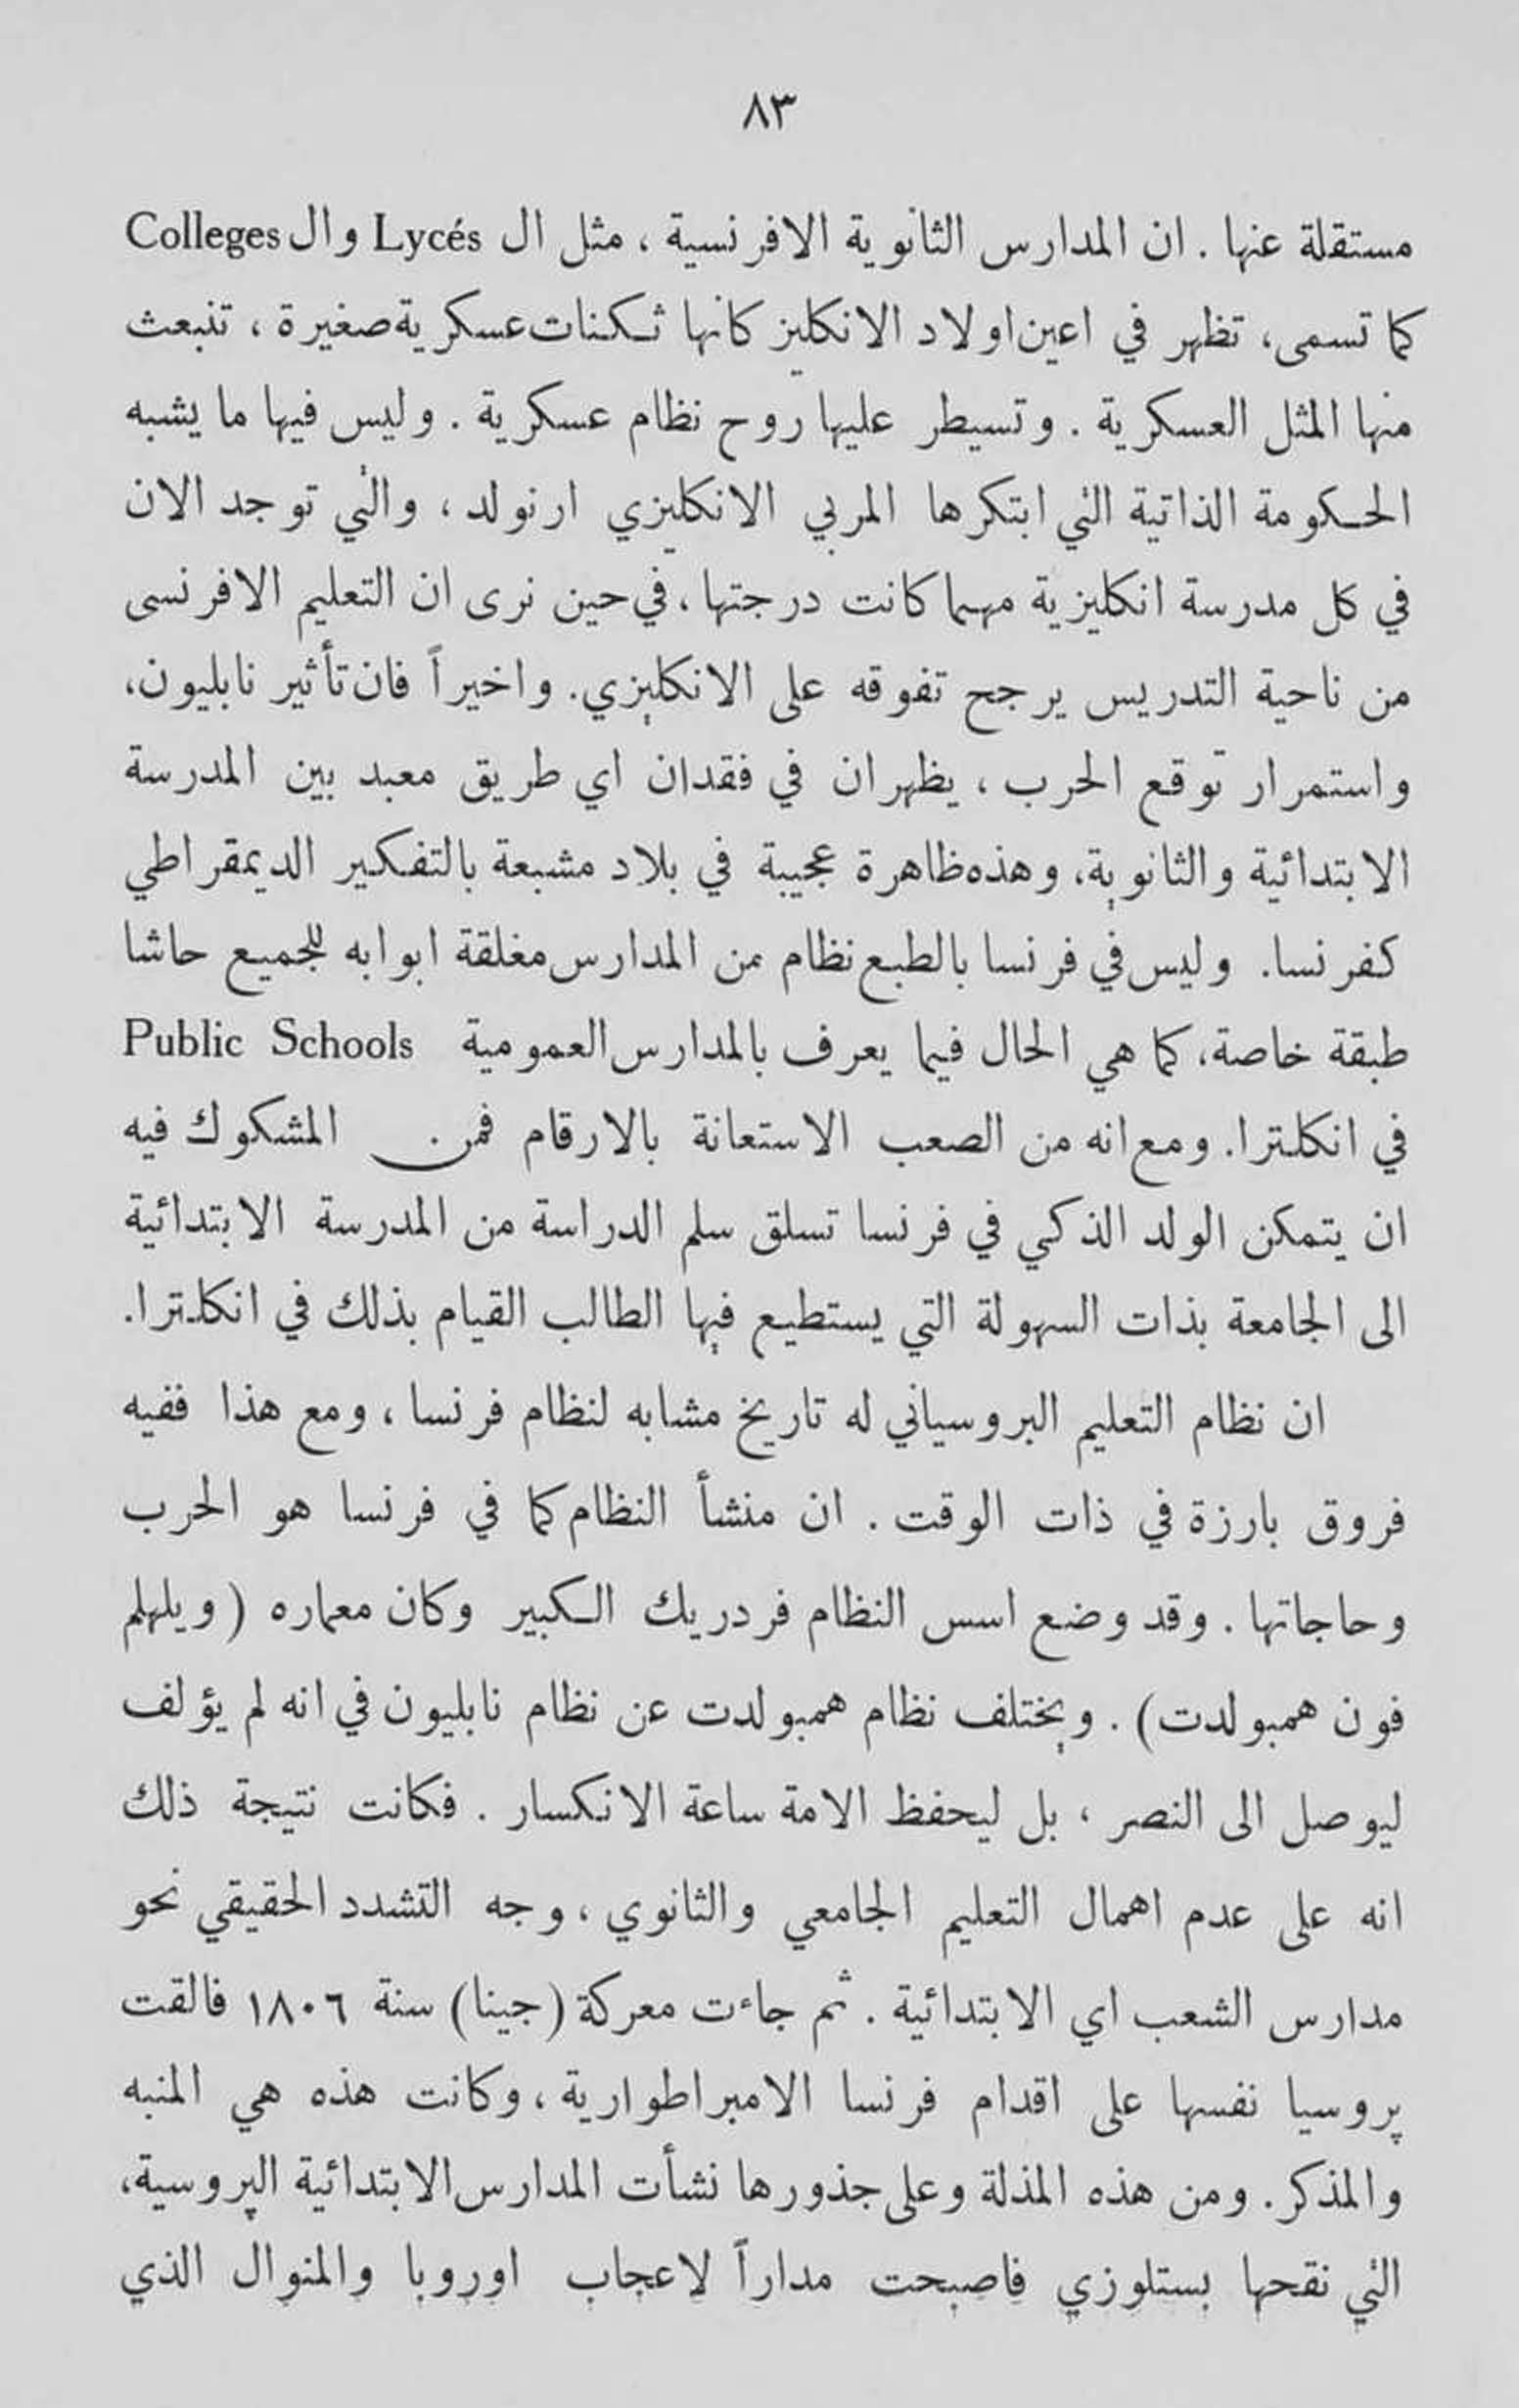 ٨٣
مستقلة عنها . ان المدارس الثانوية الافرنسية ، مثل ال Lycés وال Colleges
كما تسمى، تظهر في اعين اولاد الانكليز كانها ثكنات عسكرية صغيرة ، تنبعث
منها المثل العسكرية . وتسيطر عليها روح نظام عسكرية . وليس فيها ما يشبه
الحكومة الذاتية التي ابتكرها المربي الانكليزي ارنولد ، والتي توجد الان
في كل مدرسة انكليزية مهما كانت درجتها ، في حين نرى ان التعليم الافرنسى
من ناحية التدريس يرجح تفوقه على الانكليزي. واخيراً فان تأثير نابليون،
واستمرار توقع الحرب ، يظهران في فقدان اي طريق معبد بين المدرسة
الابتدائية والثانوية، وهذه ظاهرة عجيبة في بلاد مشبعة بالتفكير الديمقراطي
كفرنسا. وليس في فرنسا بالطبع نظام من المدارس مغلقة ابوابه للجميع حاشا
طبقة خاصة، كما هي الحال فيما يعرف بالمدارس العمومية Public Schools
في انكلترا. ومع انه من الصعب الاستعانة بالارقام فمن المشكوك فيه
ان يتمكن الولد الذكي في فرنسا تسلق سلم الدراسة من المدرسة الابتدائية
الى الجامعة بذات السهولة التي يستطيع فيها الطالب القيام بذلك في انكلترا.
ان نظام التعليم البروسياني له تاريخ مشابه لنظام فرنسا ، ومع هذا ففيه
فروق بارزة في ذات الوقت . ان منشأ النظام كما في فرنسا هو الحرب
وحاجاتها . وقد وضع اسس النظام فردريك الكبير وكان معماره ( ويلهلم
فون همبولدت) . ويختلف نظام همبولدت عن نظام نابليون في انه لم يؤلف
ليوصل الى النصر ، بل ليحفظ الامة ساعة الانكسار . فكانت نتيجة ذلك
انه على عدم اهمال التعليم الجامعي والثانوي ، وجه التشدد الحقيقي نحو
مدارس الشعب اي الابتدائية . ثم جاءت معركة (جينا) سنة ١٨٠٦ فالقت
پروسيا نفسها على اقدام فرنسا الامبراطوارية ، وكانت هذه هي المنبه
والمذكر. ومن هذه المذلة وعلى جذورها نشأت المدارس الابتدائية الپروسية،
التي نقحها بستلوزي فاصبحت مداراً لاعجاب اوروبا والمنوال الذي